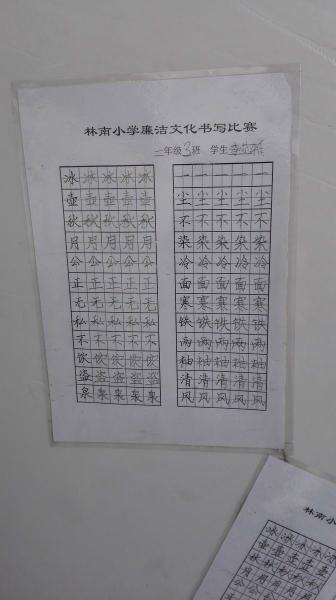 林南小学廉洁文化书写比赛
二年级3班 学生
冰冰冰冰冰 一一一一一
壶壶壶壶壶 尘尘尘尘尘
秋秋秋秋秋 不不不不不
月月月月月 染染染染染
公公公公公 冷冷冷冷冷
正正正正正 面面面面面
无无无无无 寒寒寒寒寒
私私私私私 铁铁铁铁铁
不不不不不 两两两两两
饮饮饮饮饮 袖袖袖袖袖
盗盗盗盗盗 清清清清清
泉泉泉泉泉 风风风风风
林南小
冰冰冰冰冰
壶壶壶壶壶
秋秋秋秋秋
月月月月月
公公公公